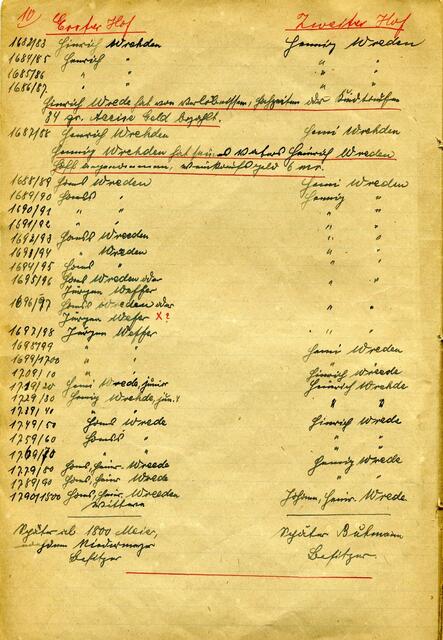 10 Erster Hof Zweiter Hof
1682/83 Hinrich Wrehden Hennig Wreden
1684/85 Henrich " " "
1685/86 " " " "
1686/87 " " " "
Henrich Wrede hat von Verlobnissen, Hochzeiten der
34 gr. Accise Geld bezahlt.
1687/88 Henrich Wrehden Henni Wrehden
Hennig Wrehden hat seines Vaters Heinrich Wreden
Hoff angenommen, Weinkaufsgeld 6
1688/89 Hans Wreden Henni Wreden
1689/90 Hanss " Hennig "
1690/91 " " " "
1691/92 " " " "
1692/93 Hanss Wreeden " "
1693/94 " Wreden " "
1694/95 Hans " " "
1695/96 Hans Wreden oder " "
Jürgen Weffer
1696/97 Hans Wreden oder " "
Jürgen Wefer X?
1697/98 Jürgen Weffer " "
1698/99 " " Henni Wreden
1699/1700 " " " "
1709/10 " " Hinrich Wreede
1719/20 Henni Wrede, junior Heinrich Wrehde
1729/30 Hennig Wrehde, jun. " "
1739/40 " " " "
1749/50 Hans Wrede Hinrich Wrede
1759/60 Hanss " " "
1769/70 " " " "
1779/80 Hans, Heinr. Wreede Hennig Wrede
1789/90 Hans, Heinr. Wrede "
1790/1800 Hans, Heinr. Wreeden Johann, Heinr. Wrede
Wittwe
Später ab 1800 Meier, Später Buhmann
nachdem Niedermeyer Besitzer.
Besitzer